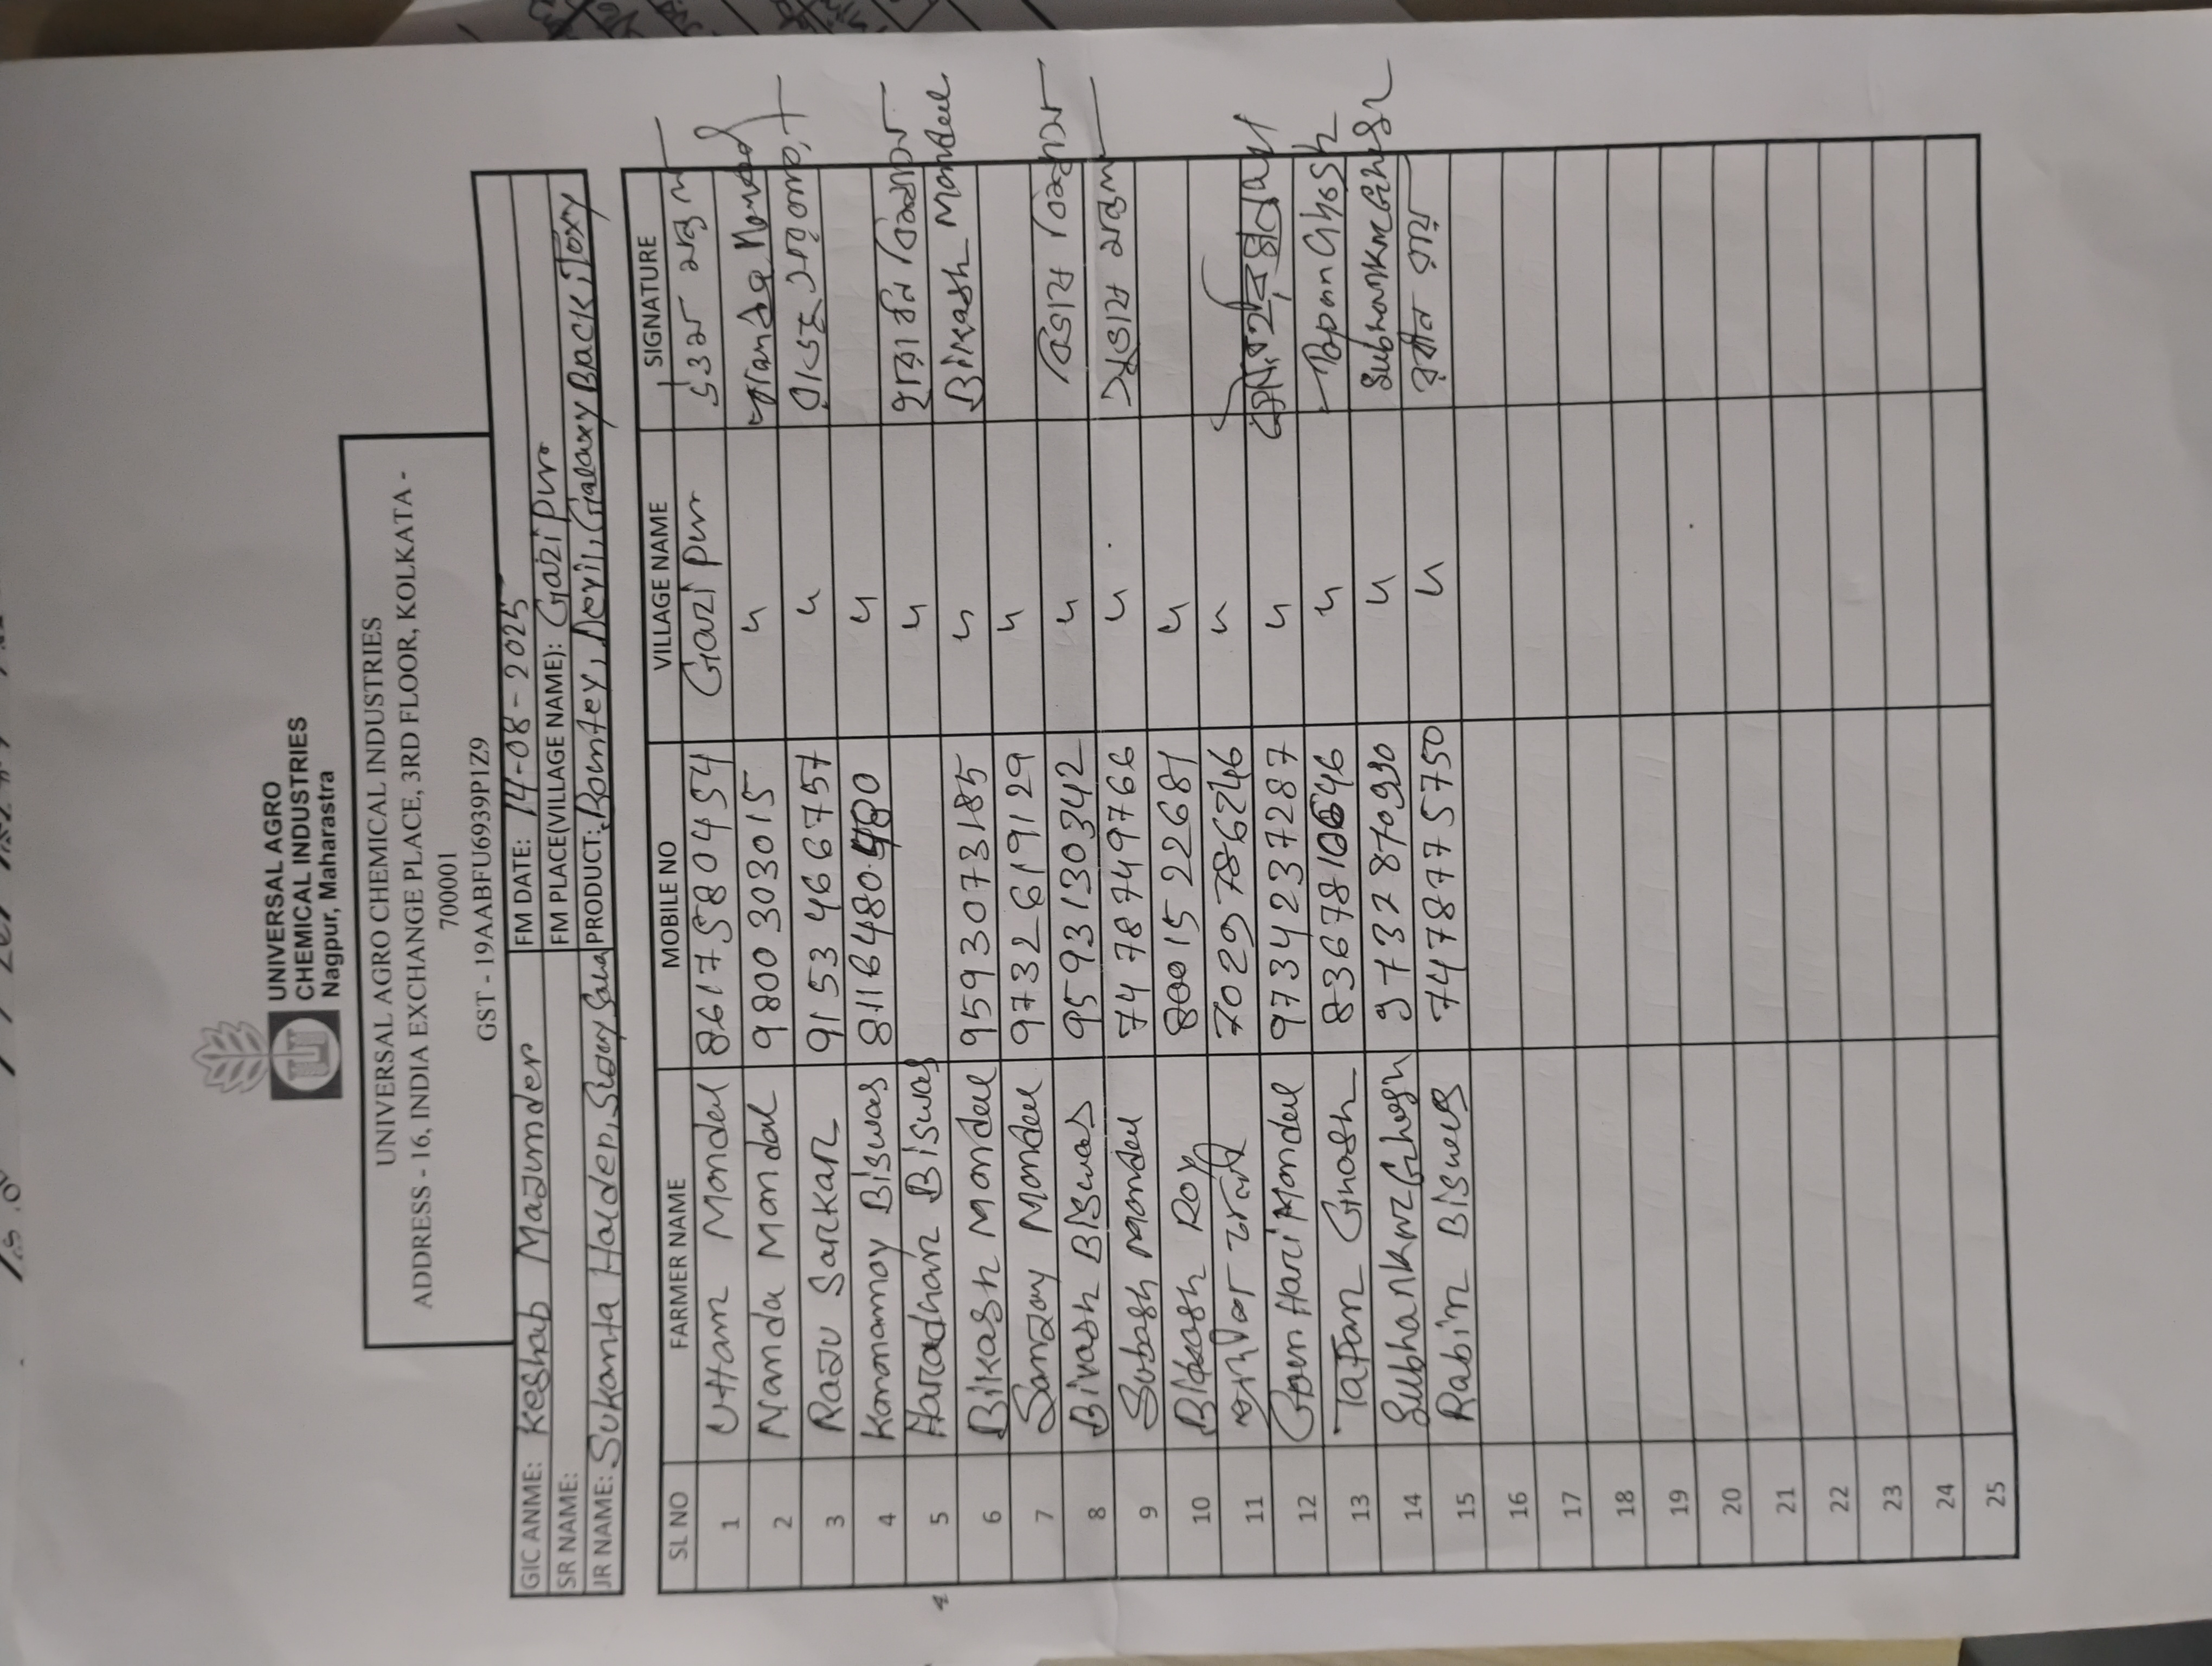 UNIVERSAL AGRO
CHEMICAL INDUSTRIES
Nagpur, Maharastra
UNIVERSAL AGRO CHEMICAL INDUSTRIES
ADDRESS - 16, INDIA EXCHANGE PLACE, 3RD FLOOR, KOLKATA -
700001
GST - 19AABFU6939P1Z9
GIC ANME: Keshab Mazumder FM DATE: 14-08-2025
SR NAME: FM PLACE(VILLAGE NAME): Gazipur
JR NAME: Sukanta Halder, PRODUCT: Devil, Galaxy
SL NO FARMER NAME MOBILE NO VILLAGE NAME SIGNATURE
1 Uttam Mondal 8617580454 Gazipur উত্তম মন্ডল
2 Nanda Mondal 9800303015 "
3 Raju Sarkar 9153466757 "
4 Konomoy Biswas "
5 Haradhan Biswas " হারাধন বিশ্বাস
6 Bikash Mondal 9593073185 " Bikash Mondal
7 Sanjoy Mondal 9732619129 "
8 Bivash Biswas 9593130342 " বিভাষ বিশ্বাস
9 Subash Mondal 7478749766 " সুভাষ মন্ডল
10 Bikash Roy 8001522681 "
11 7029786246 "
12 Gour Hari Mondal 9734237287 "
13 Tapan Ghosh " Tapan Ghosh
14 Subhankar Ghosh 9732870930 " Subhankar Ghosh
15 Rabin Biswas 7478775750 " রবীন রায়
16
17
18
19
20
21
22
23
24
25